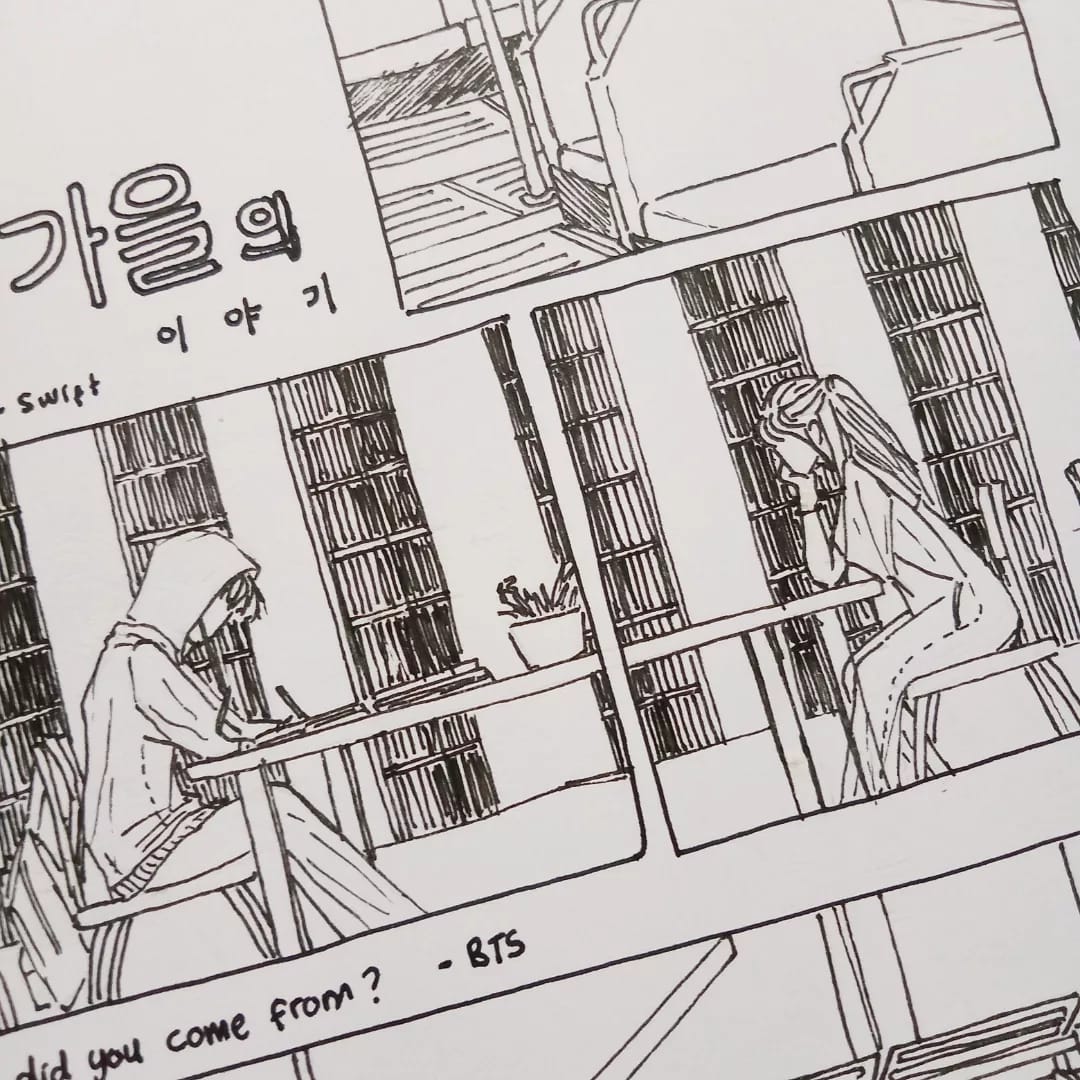 가을의
이야기
- Swift
did you come from? - BTS